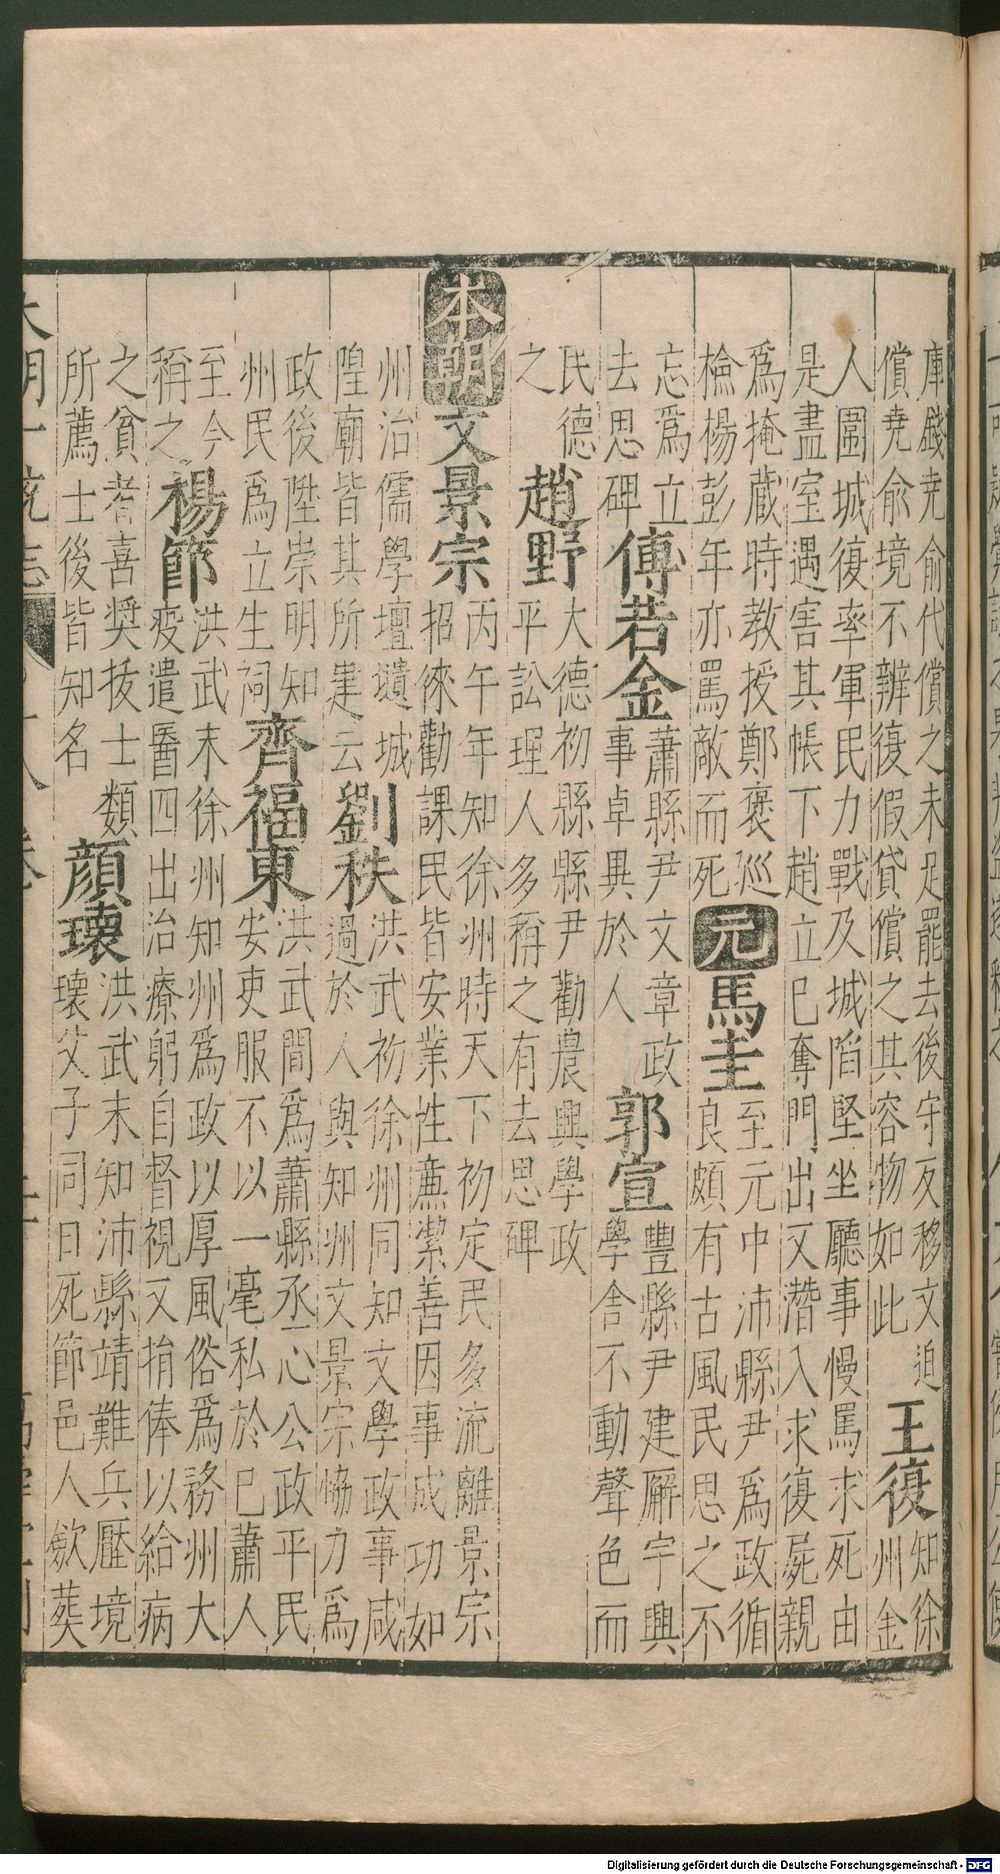 庫錢尭俞代償之未足罷去後守反移文迫
償尭俞境不辨復假貸償之其容物如此 王復 知徐
州金
人圍城復率軍民力戰及城陷堅坐廳事慢罵求死由
是盡室遇害其帳下趙立巳奪門出又潛入求復屍親
爲掩蔵時教授鄭褒巡
檢楊彭年亦罵敵而死 元 馬圭 至元中沛縣尹爲政循
良頗有古風民思之不
忘爲立
去思碑 傅若金 蕭縣尹文章政
事卓異於人 郭宣 豐縣尹建廨宇興
學舎不動聲色而
民德
之 趙野 大德初縣縣尹勸農興學政
平訟理人多稱之有去思碑
本朝 文景宗 丙午年知徐州時天下初定民多流離景宗
招徠勸課民皆安業性亷潔善因事成功如
州治儒學壇壝城
隍廟皆其所建云 劉秩 洪武初徐州同知文學政事咸
過於人與知州文景宗恊力爲
政後陞崇明知
州民爲立生祠 齊福東 洪武間爲蕭縣丞心公政平民
安吏服不以一毫私於巳蕭人
至今
稱之 楊節 洪武末徐州知州爲政以厚風俗爲務州大
疫遣醫四出治療躬自督視又捐俸以給病
之貧者喜奨拔士類
所薦士後皆知名 顔瓌 洪武末知沛縣靖難兵壓境
瓌父子同日死節邑人歛葬
大明一統志
Digitalisierung gefördert durch die Deutsche Forschungsgemeinschaft - DFG